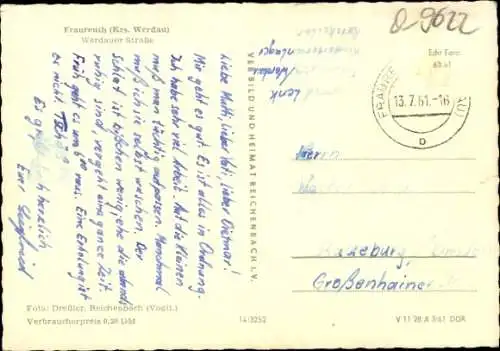 Fraureuth (Krs. Werdau)
Werdauer Straße
Liebe Mutti, lieber Vati, lieber Dietmar!
Mir geht es gut. Es ist alles in Ordnung.
Ich habe sehr viel Arbeit. Auf die Kleinen
muß man tüchtig aufpassen. Manchmal
muß ich sie selbst waschen. Der
Schlaf ist bißchen wenig, ehe die abends
ruhig sind, vergeht eine ganze Zeit.
Früh geht es um 6 raus. Eine Erholung ist
es nicht.
Es grüßt herzlich
Euer Siegfried
Foto: Dreßler, Reichenbach (Vogtl.)
Verbraucherpreis 0,20 DM
VER BILD UND HEIMAT REICHENBACH I. V.
14/3252
O-9622
Echt Foto
13.7.61.-16
b
Herrn
Großenhainer
V 11 28 A 3/61 DDR